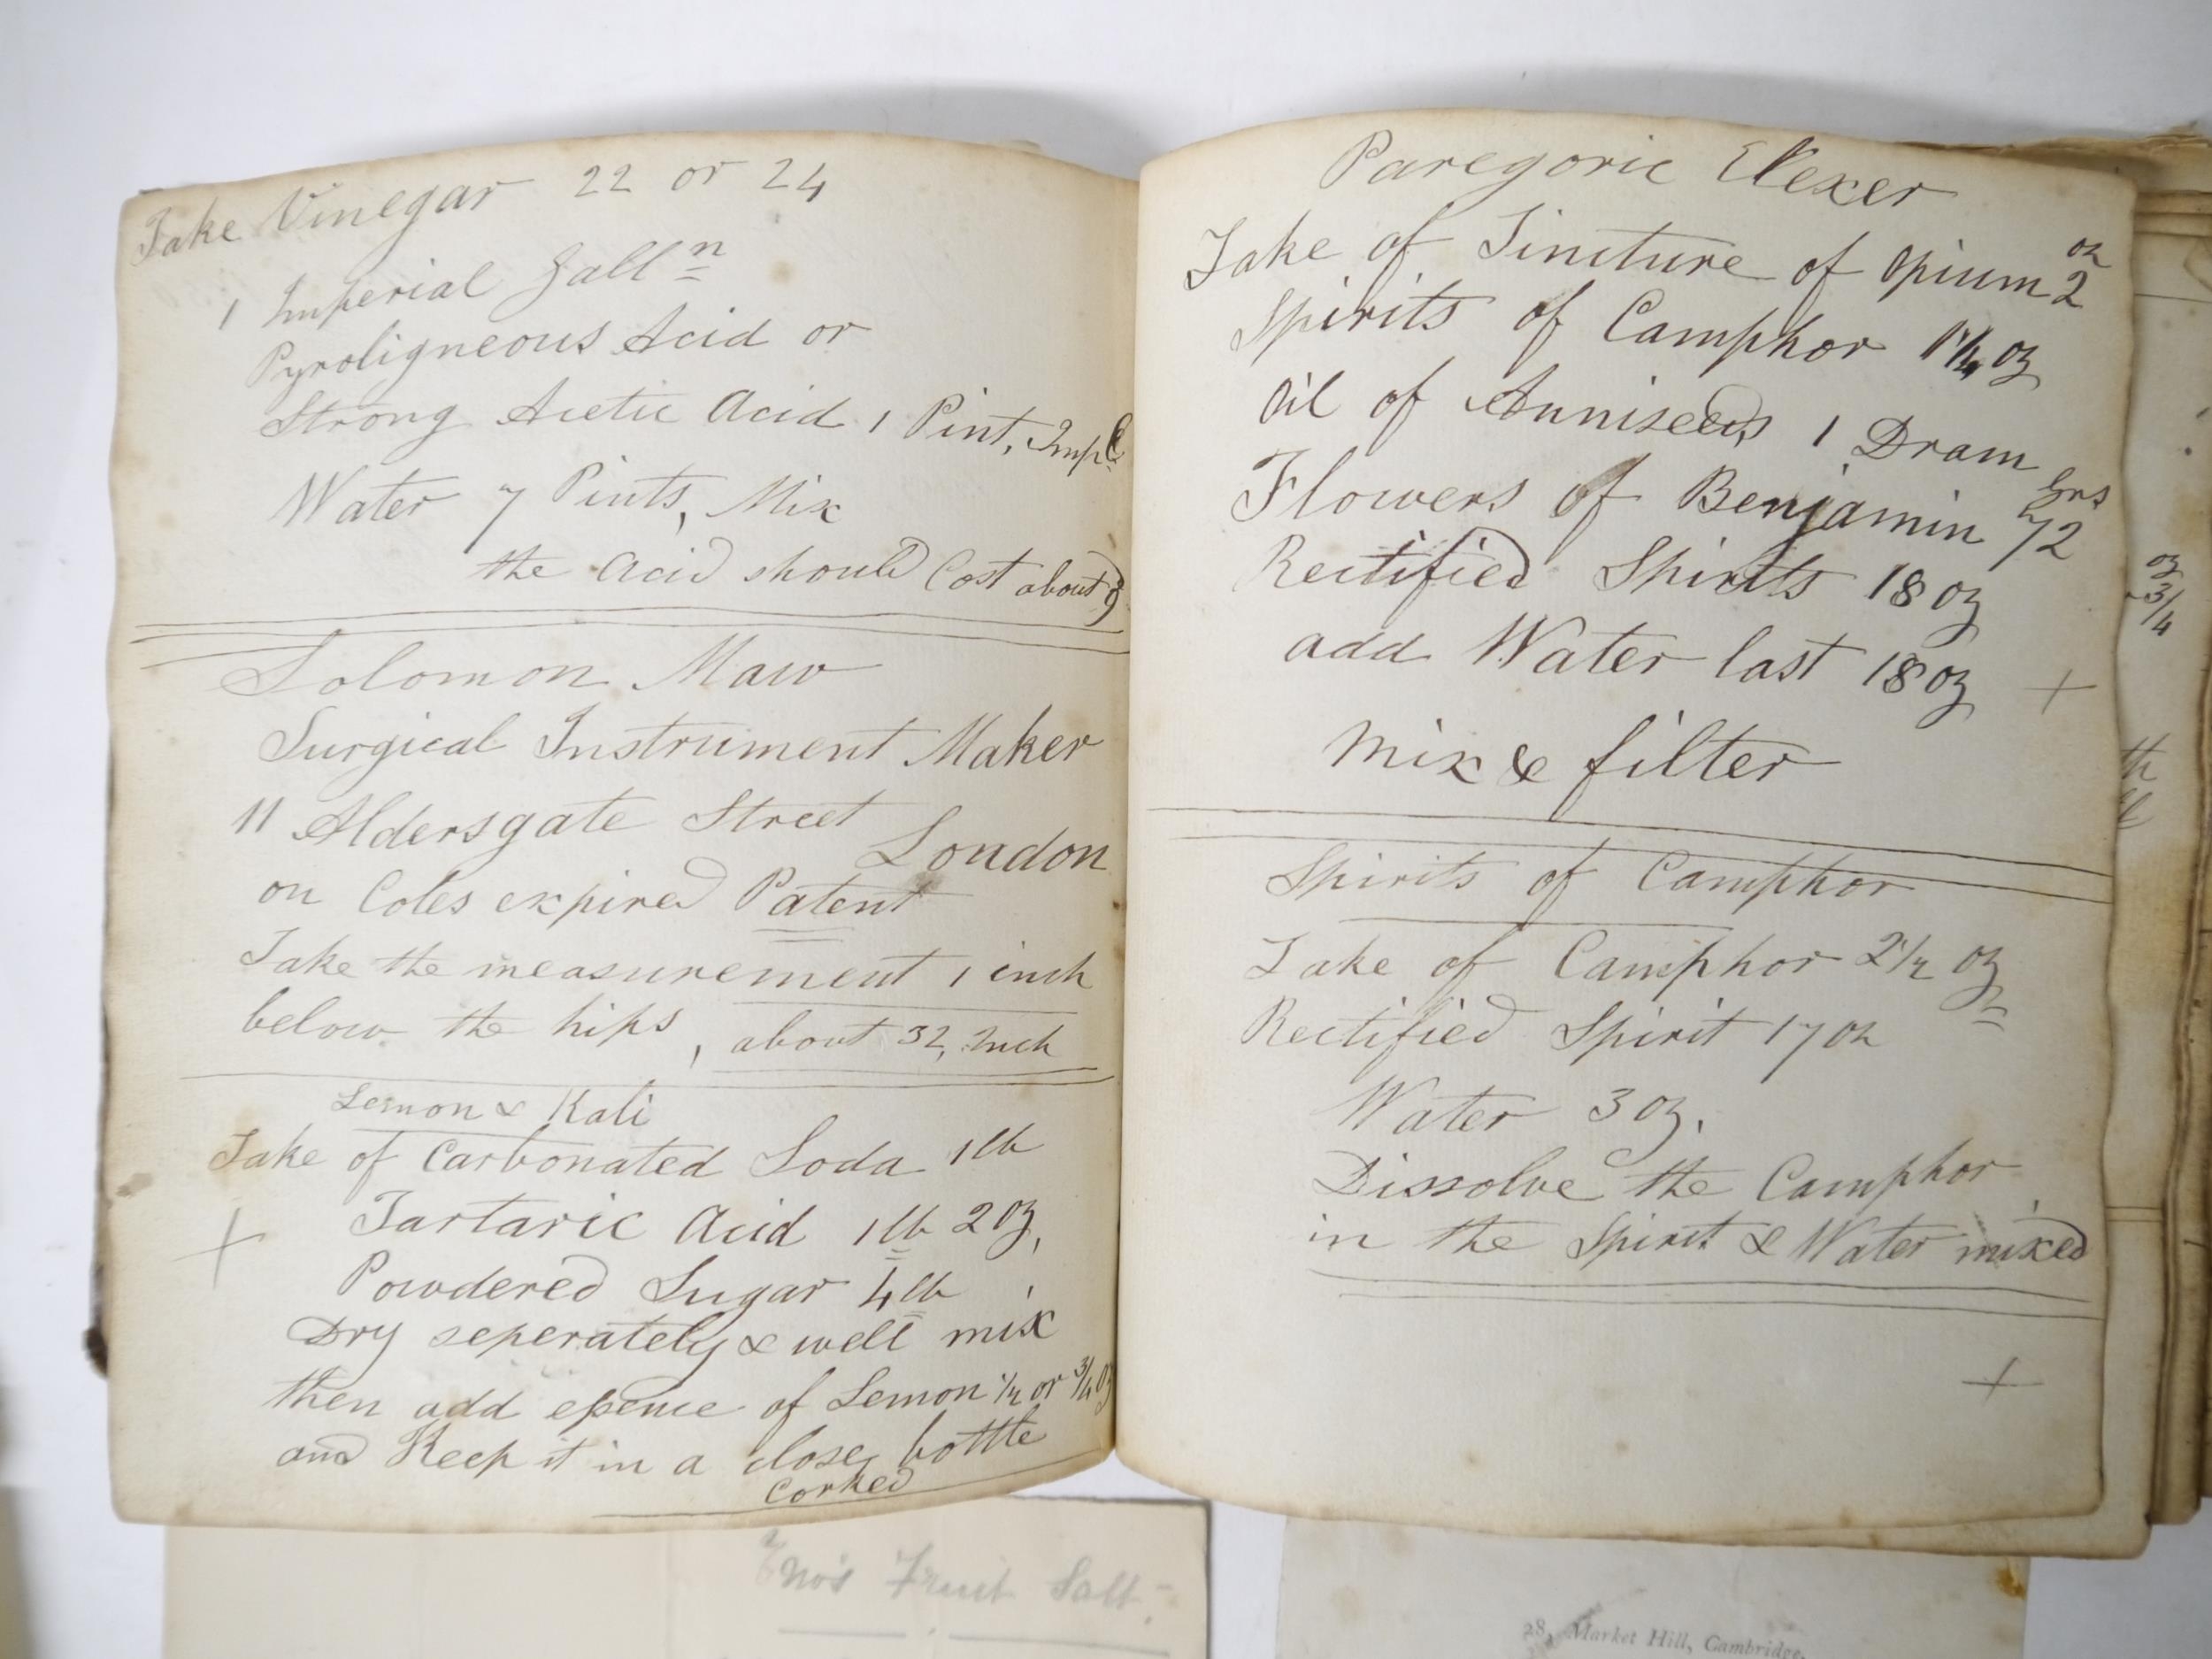 Take Vinegar 22 or 24
1 Imperial Galln
Pyroligneous Acid or
Strong Acetic Acid 1 Pint, Impl
Water 7 Pints, Mix
the Acid should Cost about
Solomon Maw
Surgical Instrument Maker
11 Aldersgate Street
London
on Coles expired Patent
Take the measurement 1 inch
below the hips, about 32, Inch
Lemon & Kali
Take of Carbonated Soda 1 lb
Tartaric Acid 1 lb 2 oz,
Powdered Sugar 4 lb
Dry seperately & well mix
then add essence of Lemon 1/2 or 3/4 oz
and Keep it in a close bottle
Corked
Paregoric Elexer
Take of Tincture of Opium 2 oz
Spirits of Camphor 1 1/4 oz
Oil of Anniseeds 1 Dram
Flowers of Benjamin 72 Grs
Rectified Spirits 18 oz
add Water last 18 oz
Mix & filter
Spirits of Camphor
Take of Camphor 2 1/2 oz
Rectified Spirit 17 oz
Water 3 oz.
Dissolve the Camphor
in the Spirit & Water mixed
oz
3/4
th
Eno's Fruit Salt.
28, Market Hill, Cambridge.